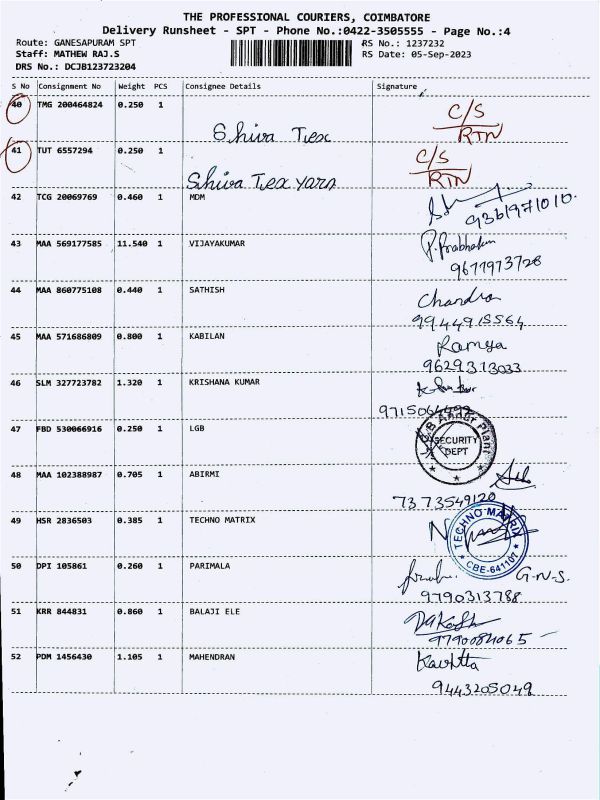 THE PROFESSIONAL COURIERS, COIMBATORE
Delivery Runsheet - SPT - Phone No.:0422-3505555 - Page No.:4
Route: GANESAPURAM SPT RS No.: 1237232
Staff: MATHEW RAJ.S RS Date: 05-Sep-2023
DRS No.: DCJB123723204
S No Consignment No Weight PCS Consignee Details Signature
40 TMG 200464824 0.250 1 Shiva Tex C/S RTN
41 TUT 6557294 0.250 1 Shiva Tex yarn C/S RTN
42 TCG 20069769 0.460 1 MDM 9361971010.
43 MAA 569177585 11.540 1 VIJAYAKUMAR P. Prabhakun
9677973728
44 MAA 860775108 0.440 1 SATHISH Chandra
9944915564
45 MAA 571686809 0.800 1 KABILAN Ramya
9629313033
46 SLM 327723782 1.320 1 KRISHANA KUMAR
9715064492
47 FBD 530066916 0.250 1 LGB
SECURITY
DEPT
48 MAA 102388987 0.705 1 ABIRMI
7373549120
49 HSR 2836503 0.385 1 TECHNO MATRIX TECHNO MATRIX
CBE-641107
50 DPI 105861 0.260 1 PARIMALA G.N.S.
9790313788
51 KRR 844831 0.860 1 BALAJI ELE
9790084065
52 PDM 1456430 1.105 1 MAHENDRAN Kavitta
9443205049